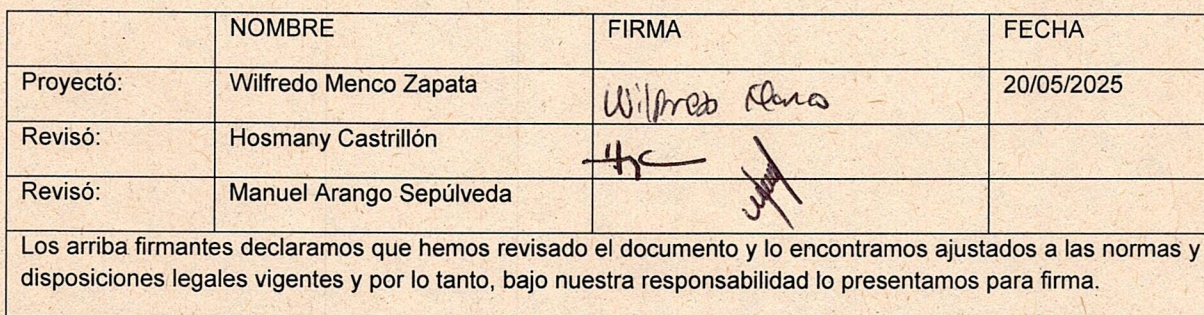 NOMBRE FIRMA FECHA
Proyectó: Wilfredo Menco Zapata Wilfredo Menco 20/05/2025
Revisó: Hosmany Castrillón
Revisó: Manuel Arango Sepúlveda
Los arriba firmantes declaramos que hemos revisado el documento y lo encontramos ajustados a las normas y
disposiciones legales vigentes y por lo tanto, bajo nuestra responsabilidad lo presentamos para firma.